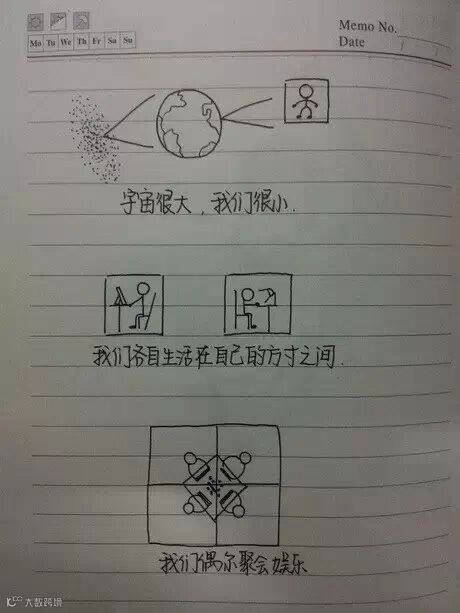 Memo No.
Mo Tu We Th Fr Sa Su
Date
宇宙很大，我们很小.
我们各自生活在自己的方寸之间.
我们偶尔聚会娱乐
大数跨境